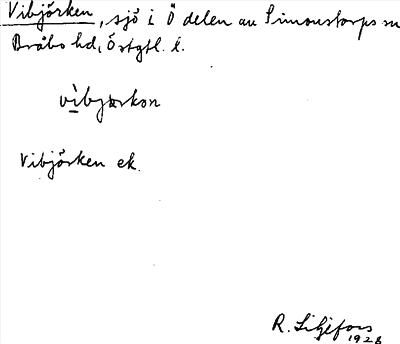 Vibjörken, sjö i Ö delen av Simonstorps sn
Bråbo hd, Östgtl. l.
vìbjørkon
Vibjörken ek.
R. Liljefors
1928